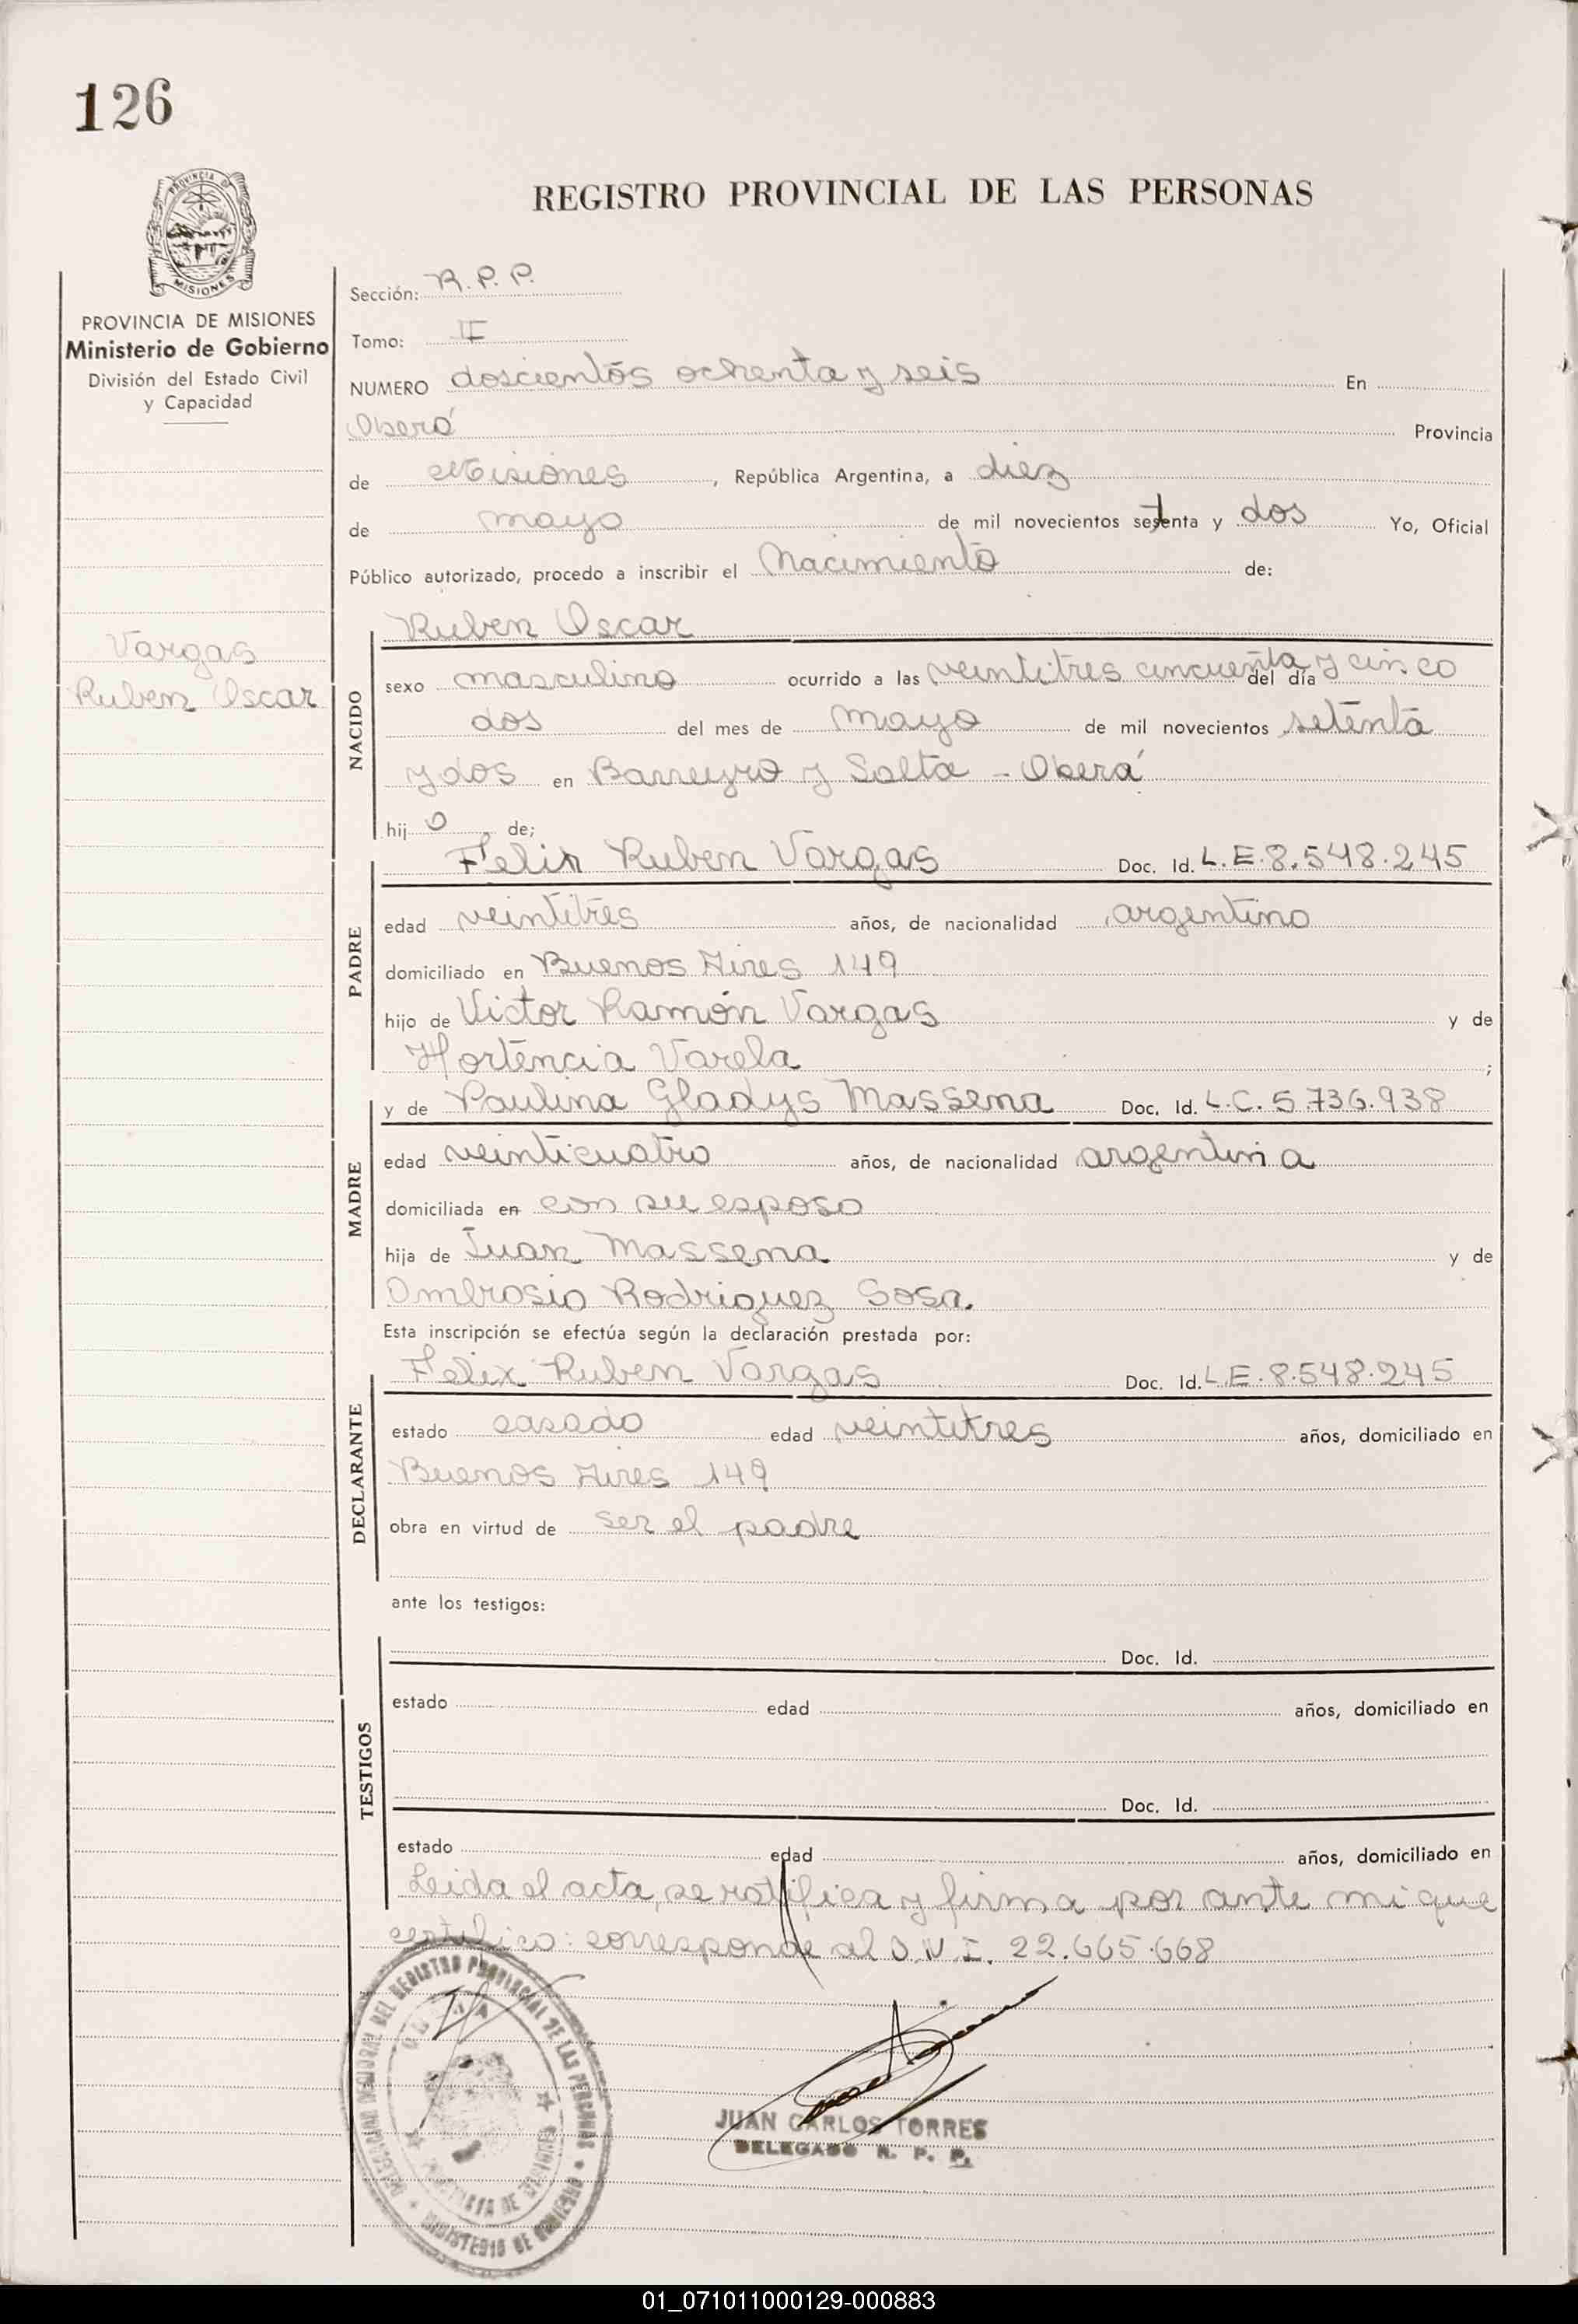 126
PROVINCIA DE
MISIONES
REGISTRO PROVINCIAL DE LAS PERSONAS
PROVINCIA DE MISIONES
Ministerio de Gobierno
División del Estado Civil
y Capacidad
Vargas
Ruben Oscar
Sección: R.P.P.
Tomo: II
NUMERO doscientos ochenta y seis En
Oberá Provincia
de Misiones, República Argentina, a diez
de mayo de mil novecientos setenta y dos Yo, Oficial
Público autorizado, procedo a inscribir el Nacimiento de:
NACIDO
Ruben Oscar
sexo masculino ocurrido a las veintitres cincuenta y cinco del día
dos del mes de mayo de mil novecientos setenta
y dos en Barreyro y Salta - Oberá
hijo de;
PADRE
Felix Ruben Vargas Doc. Id. L.E.8.548.245
edad veintitres años, de nacionalidad argentino
domiciliado en Buenos Aires 149
hijo de Victor Ramón Vargas y de
Hortencia Varela ;
MADRE
y de Paulina Gladys Massena Doc. Id. L.C. 5.736.938
edad veinticuatro años, de nacionalidad argentina
domiciliada en con su esposo
hija de Juan Massena y de
Ombrosia Rodriguez Sosa.
Esta inscripción se efectúa según la declaración prestada por:
DECLARANTE
Felix Ruben Vargas Doc. Id. L.E.8.548.245
estado casado edad veintitres años, domiciliado en
Buenos Aires 149
obra en virtud de ser el padre
ante los testigos:
TESTIGOS
Doc. Id.
estado edad años, domiciliado en
Doc. Id.
estado edad años, domiciliado en
Leida el acta, se ratifica y firma por ante mi que
certifico: corresponde al D.N.I. 22.665.668
DEL REGISTRO PROVINCIAL DE LAS PERSONAS
MINISTERIO DE GOBIERNO
JUAN CARLOS TORRES
DELEGADO R. P. P.
01_071011000129-000883